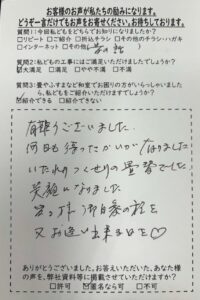 お客様のお声が私たちの励みになります。
どうぞ一言だけでもお声をお寄せください。お待ちしております。
質問1:今回私どもをどちらでお知りになりましたか?
□リピート □ご紹介 □折込チラシ □その他のチラシ・ハガキ
□インターネット □その他(
質問2:私どもの工事にはご満足いただけましたでしょうか?
☑大満足 □満足 □やや不満 □不満
質問3:畳やふすまなど和室でお困りの方がいらっしゃいましたら、私どもをご紹介いただけますでしょうか?
☑紹介できる □紹介できない
有難うございました。
何日も待ったかいが有りました
いたれりつくせりの畳替でした
笑顔になりました
又お逢い出来る日を♡
ありがとうございました。お答えいただいた、あなた様
の声を、弊社資料等に掲載させていただけますか?
□許可 ☑匿名なら可 □不可